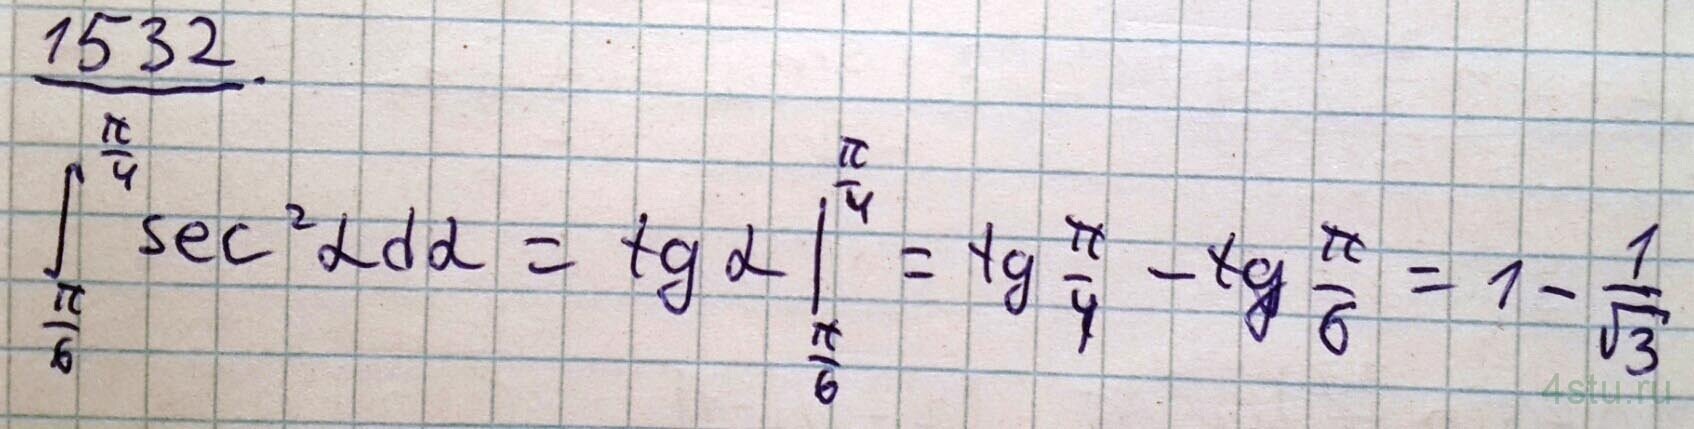 1532.
∫_{π/6}^{π/4} sec²α dα = tg α |_{π/6}^{π/4} = tg π/4 − tg π/6 = 1 − 1/√3
4stu.ru